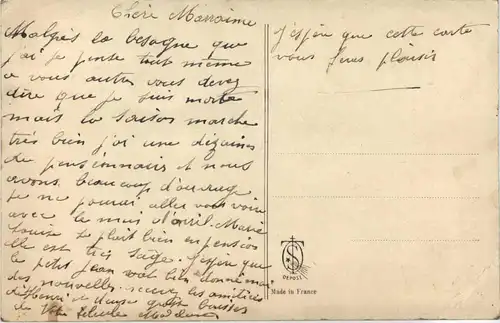 Chère Marraine
Malgrés la besogne que
j'ai je pense tout même
a vous autres vous devez
dire que je suis morte
mais la saison marche
très bien j'ai une dizaines
de pensionnaires et nous
avons beaucoup d'ouvrage
je ne pourai aller vous voir
avec le mois d'avril. Marie
Louise se plait bien en pension
elle est très sage. J'espère que
le petit Jean va bien donné moi
des nouvelles recevez les amitiées
d'Henri et deux gros baisers
de Madeleine
j'espère que cette carte
vous fera plaisir
DEPOSE
Made in France